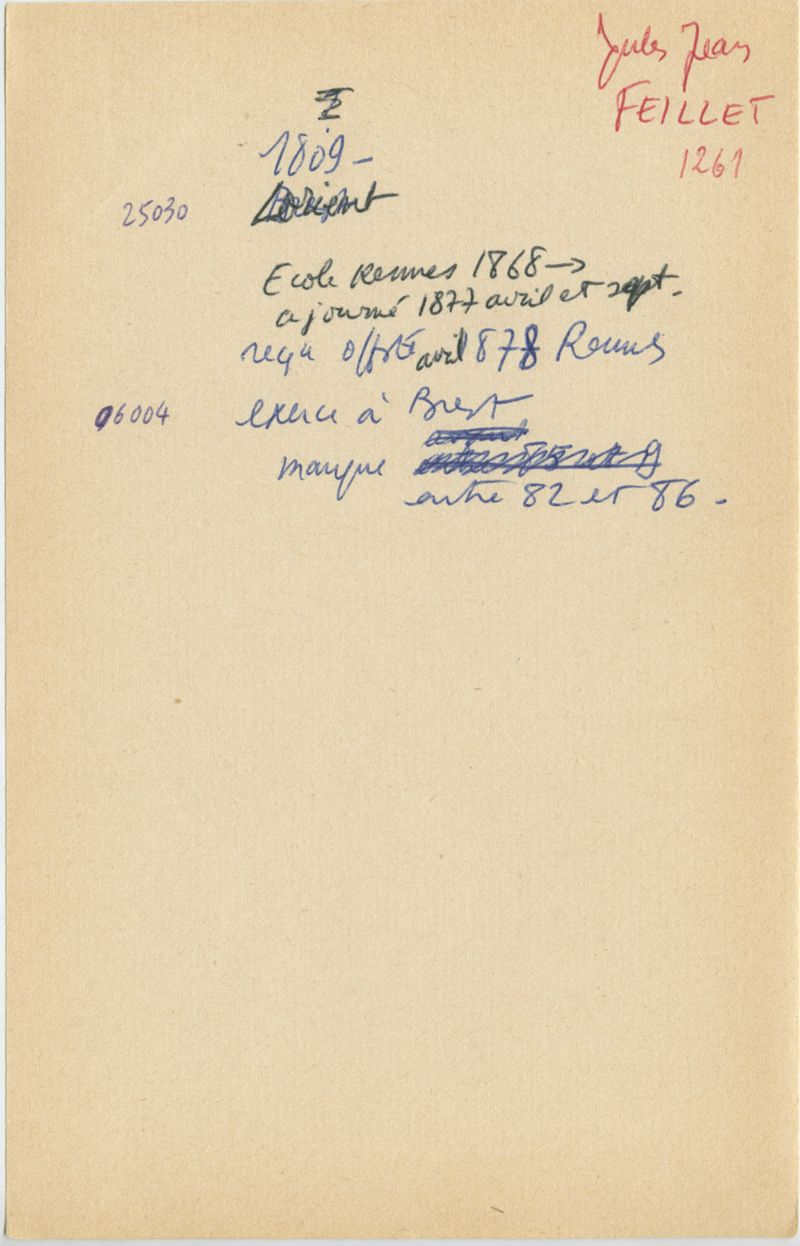 Jules Jean
FEILLET
1261
1809 -
25030 Lorient
Ecole Rennes 1868 →
ajourné 1877 avril et sept.
reçu off sté avril 878 Rennes
06004 exerce à Brest
avant
manque
entre 82 et 86.